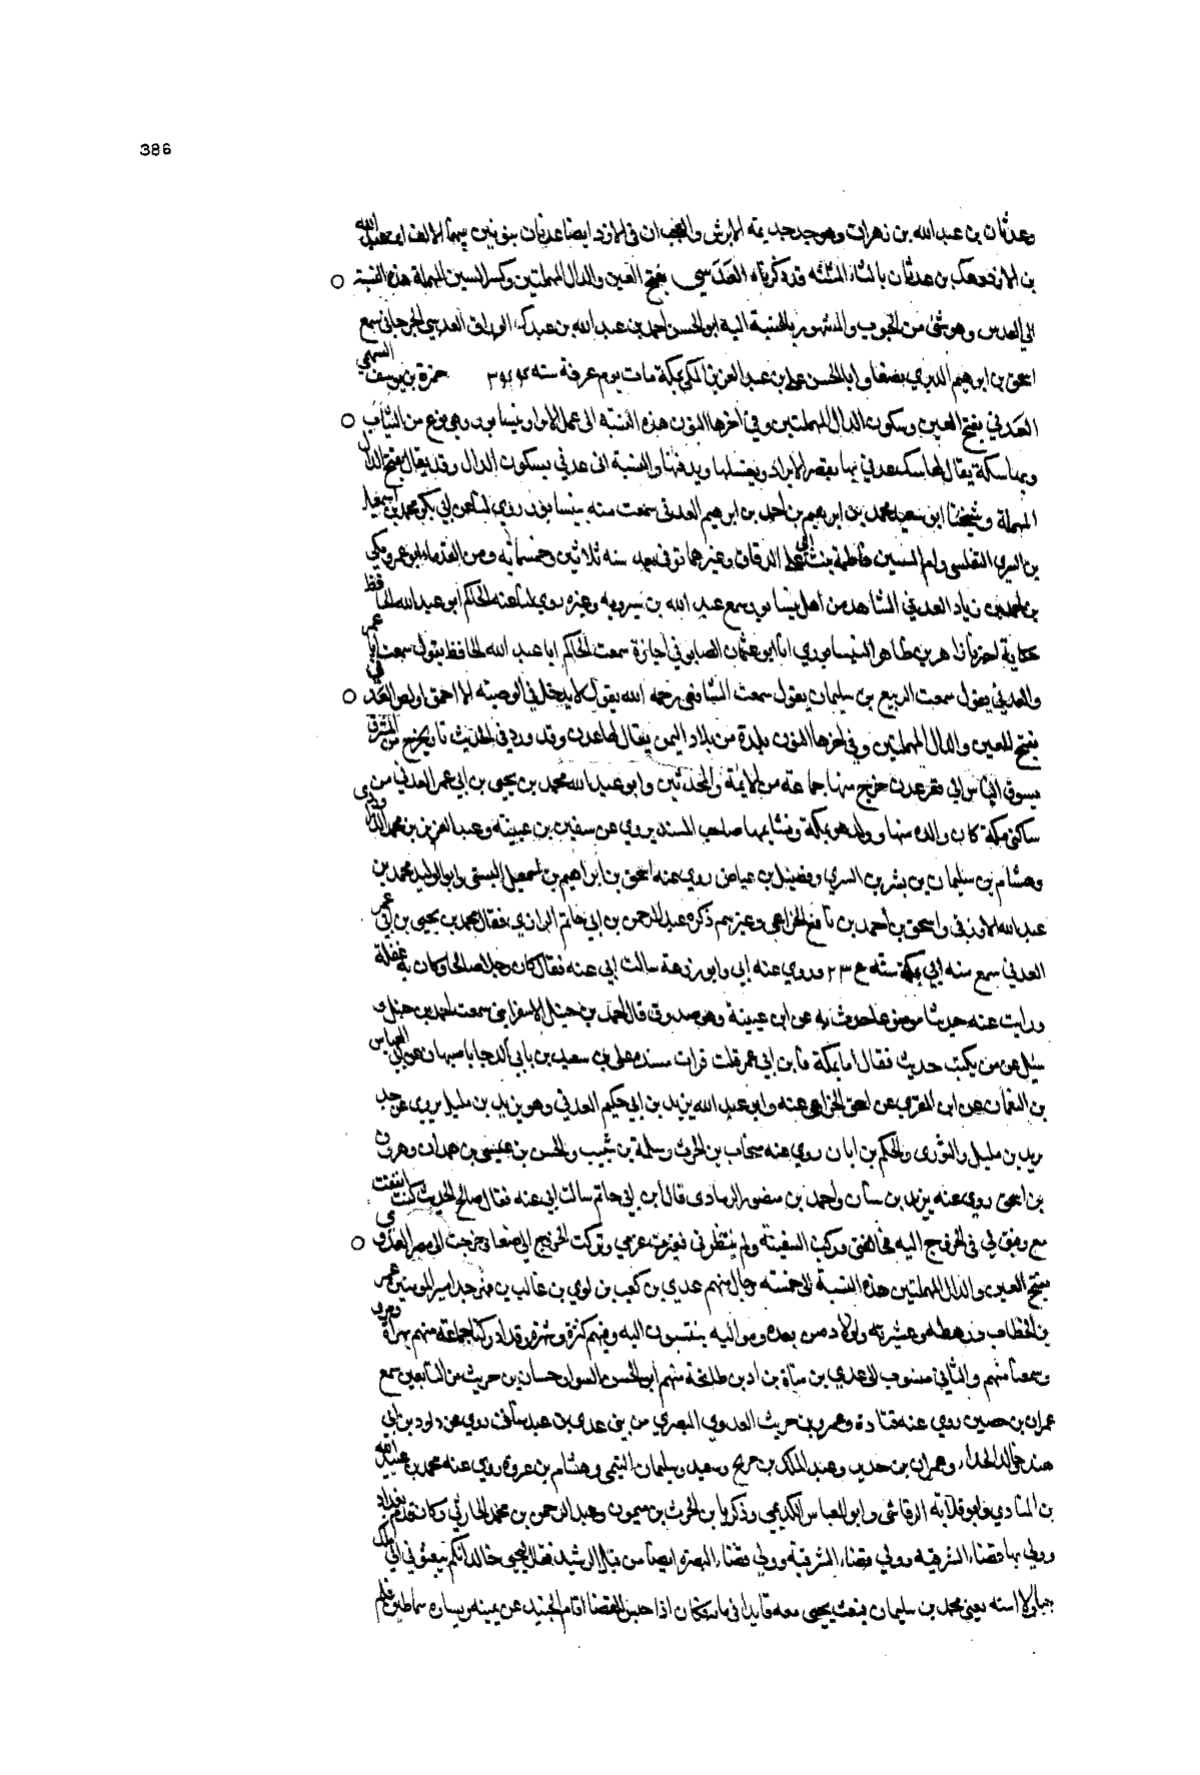 386
وعدثان بن عبد الله بن زهران وهو جد جذيمة الابرش والعجب ان في الازد ايضا عدنان بنونين بينهما الالف ابن عبد الله
بن الازد وعك بن عدثان بالثاء المثلثة قد ذكرناه العدسي بفتح العين والدال المهملتين وكسر السين المهملة هذه النسبة
الى العدس وهو شئ من الحبوب والمشهور بالنسبة اليه ابو الحسن احمد بن عبد الله بن عبدك الوراق العدسي الجرجاني سمع
اسحق بن ابرهيم الدبري بصنعا وابا الحسن علي بن عبد العزيز المكي بمكة مات يوم عرفة سنه حمزة بن يوسف السهمي
العدني بفتح العين وسكون الدال المهملتين وفي اخرها النون هذه النسبة الى عمل الابراد بنيسابور وهي نوع من الثياب
وبها سكة يقال لها سكة عدني بها يقصر الابراد ويغسلها ويدقها والنسبة الى عدني بسكون الدال وقد يقال بفتح الدال
المهملة وشيخنا ابو سعيد محمد بن ابرهيم بن احمد بن ابرهيم العدني سمعت منه بنيسابور روى لنا عن ابي بكر محمد بن اسمعيل
بن السري التفليسي وام الحسين فاطمة بنت ابي علي الدقاق وغيرهما توفي سنه ثلاثين وخمسمائه ومن القدماء ابو عمرو مكي
بن احمد بن زياد العدني الشاهد من اهل نيسابور سمع عبد الله بن شيرويه وغيره روى لنا عنه الحاكم ابو عبد الله الحافظ
حكاية اخبرنا زاهر بن طاهر النيسابوري انا ابو عثمان الصابوني اجازة سمعت الحاكم ابا عبد الله الحافظ يقول سمعت ابا عمر
والعدني يقول سمعت الربيع بن سليمان يقول سمعت الشافعي رحمه الله يقول لا يدخل في الوصية الا احمق او لص العدني
بفتح العين والدال المهملتين وفي اخرها النون بلدة من بلاد اليمن يقال لها عدن وقد ورد في الحديث نار يخرج من المشرق
يسوق الناس الى قعر عدن خرج منها جماعة من الائمة والمحدثين وابو عبد الله محمد بن يحيى بن ابي عمر العدني من
ساكني مكة كان والده منها وولد هو بمكة ونشا بها صاحب المسند يروي عن سفين بن عيينة وعبد العزيز بن محمد الدراوردي
وهشام بن سليمان بن بشر بن السري وفضيل بن عياض روى عنه اسحق بن ابراهيم بن اسمعيل البستي وابو الوليد محمد بن
عبد الله الازرقي واسحق بن احمد بن نافع الخزاعي وغيرهم ذكره عبد الرحمن بن ابي حاتم الرازي فقال محمد بن يحيى بن ابي عمر
العدني سمع منه ابي بمكة سنه وروى عنه ابي وابو زرعة سالت ابي عنه فقال كان رجلا صالحا وكان به غفلة
ورايت عنده حديثا موضوعا حدث به عن ابن عيينة وهو صدوق قال احمد بن سهل الاسفرايني سمعت احمد بن حنبل و
سئل عن من يكتب حديث فقال اما بمكة فابن ابي عمر قلت قرات مسنده على بن سعيد بن ابي الرجا باصبهان عن ابي العباس
بن النعمان عن ابن المقري عن اسحق الخزاعي عنه وابو عبد الله يزيد بن ابي حكيم العدني وهو يزيد بن مليل يروي عن جده
يزيد بن مليل والثوري والحكم بن ابان روى عنه سحاب بن الحرث وسلمة بن شبيب والحسن بن عيسى بن حمدان وهرون
بن اسحق روى عنه يزيد بن سنان واحمد بن منصور الرمادي قال ابن ابي حاتم سالت ابي عنه فقال صالح الحديث كنت اتفقت
مع رفيق لي في الخروج اليه فخالفني وركب السفينة ولم ينتظرني فعزمت عزمي وتركت الخروج الى صنعا وخرجت الى مصر العدوي
بفتح العين والدال المهملتين هذه النسبة الى خمسة رجال منهم عدي بن كعب بن لوي بن غالب بن فهر جد امير المومنين عمر
بن الخطاب ورهطه وعشيرته واولاده من بعده ومواليه ينتسبون اليه وفيهم كثرة وشهرة وقد ادركنا جماعة منهم بهراة ومرو
وسمعنا منهم والثاني منسوب الى عدي بن مناة بن اد بن طابخة منهم ابو الحسن السوار حسان بن حريث من التابعين سمع
عمران بن حصين روى عنه قتادة وعمرو بن حريث العدوي البصري من بني عدي بن عبد مناف روى عن داود بن ابي
هند وخالد الحذاء وعمران بن حدير وعبد الملك بن جريج وسعيد وسليمان التيمي وهشام بن عروة روى عنه محمد بن عبيد الله
بن المنادي وابو قلابة الرقاشي وابو العباس الكديمي وزكريا بن الحرث بن ميمون وعبد الرحمن بن محمد الحارثي وكان قدم بغداد
وولي بها قضاء الشرقية وولي قضاء الشرقية وولي قضاء البصرة ايضا من قبل الرشيد فقال يحيى خالد انكم تبعثوني الى ملك
جبار لا امنه يعني محمد بن سليمان فبعث يحيى معه قايدا في مائة فكان اذا جلس للقضا اقام الجند عن يمينه ويساره سماطين فلم